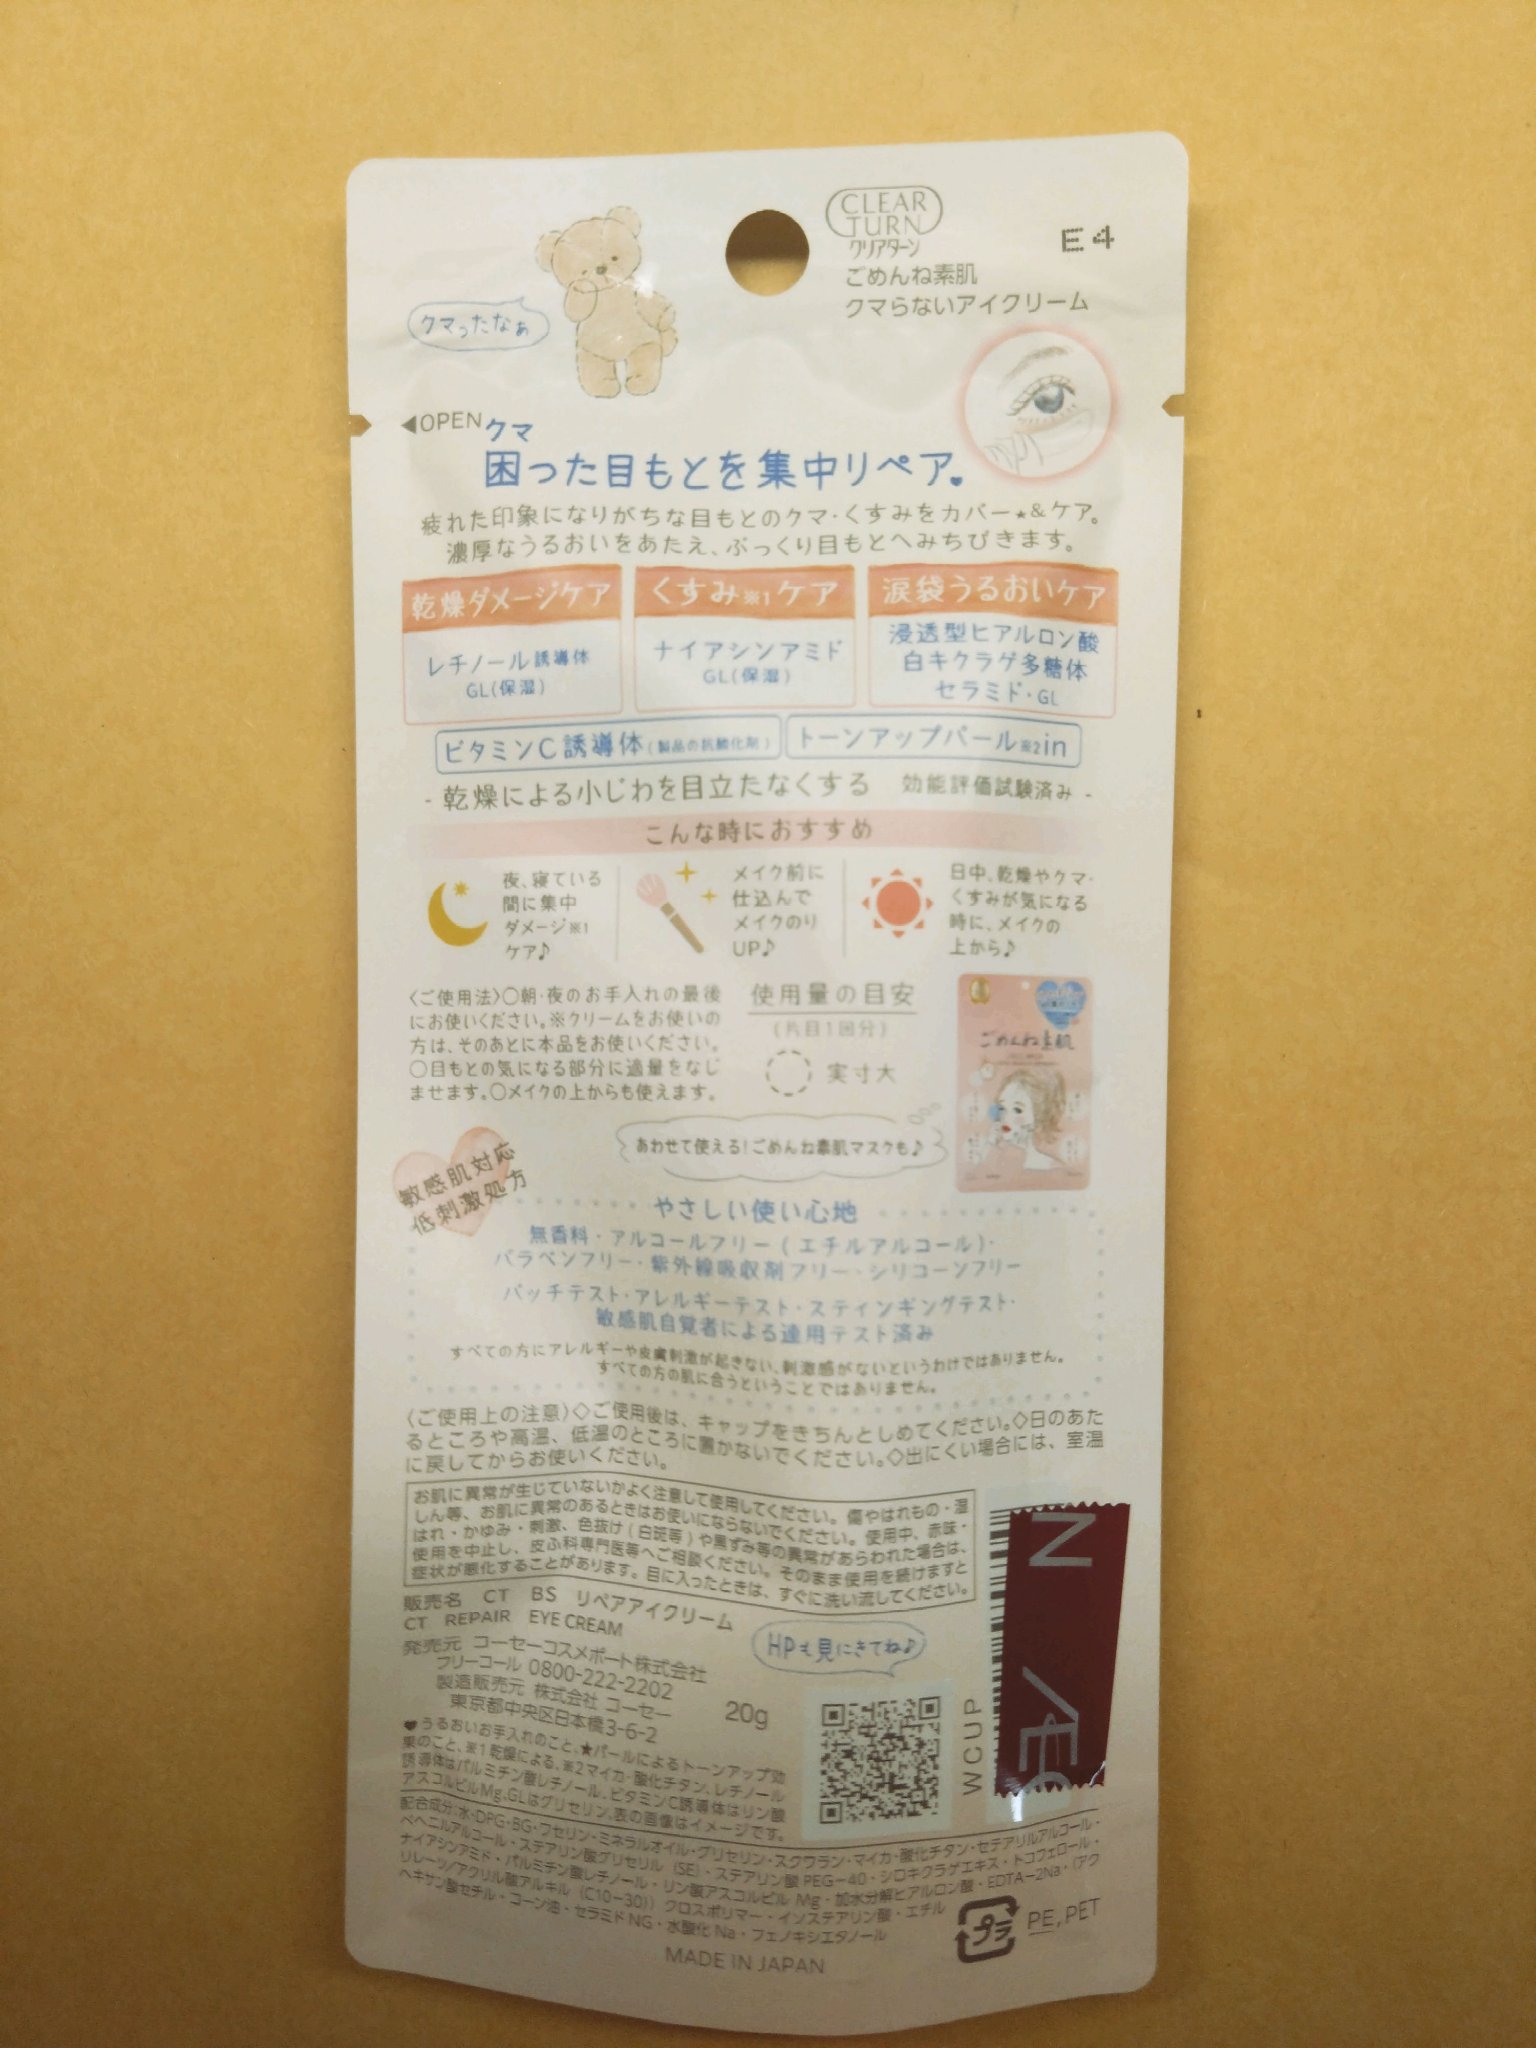 CLEAR
TURN
クリアターン
E4
ごめんね素肌
クマらないアイクリーム
クマったなぁ
◀OPEN
クマ
困った目もとを集中リペア♥
疲れた印象になりがちな目もとのクマ・くすみをカバー★&ケア。
濃厚なうるおいをあたえ、ぷっくり目もとへみちびきます。
乾燥ダメージケア
レチノール誘導体
GL(保湿)
くすみ※1ケア
ナイアシンアミド
GL(保湿)
涙袋うるおいケア
浸透型ヒアルロン酸
白キクラゲ多糖体
セラミド・GL
ビタミンC誘導体(製品の抗酸化剤)
トーンアップパール※2in
- 乾燥による小じわを目立たなくする 効能評価試験済み -
こんな時におすすめ
夜、寝ている
間に集中
ダメージ※1
ケア♪
メイク前に
仕込んで
メイクのり
UP♪
日中、乾燥やクマ・
くすみが気になる
時に、メイクの
上から♪
〈ご使用法〉○朝・夜のお手入れの最後
にお使いください。※クリームをお使いの
方は、そのあとに本品をお使いください。
○目もとの気になる部分に適量をなじ
ませます。○メイクの上からも使えます。
使用量の目安
(片目1回分)
実寸大
ごめんね素肌
あわせて使える!ごめんね素肌マスクも♪
敏感肌対応
低刺激処方
やさしい使い心地
無香料・アルコールフリー(エチルアルコール)・
パラベンフリー・紫外線吸収剤フリー・シリコーンフリー
パッチテスト・アレルギーテスト・スティンギングテスト・
敏感肌自覚者による連用テスト済み
すべての方にアレルギーや皮膚刺激が起きない、刺激感がないというわけではありません。
すべての方の肌に合うということではありません。
〈ご使用上の注意〉◇ご使用後は、キャップをきちんとしめてください。◇日のあた
るところや高温、低温のところに置かないでください。◇出にくい場合には、室温
に戻してからお使いください。
お肌に異常が生じていないかよく注意して使用してください。傷やはれもの・湿
しん等、お肌に異常のあるときはお使いにならないでください。使用中、赤味・
はれ・かゆみ・刺激、色抜け(白斑等)や黒ずみ等の異常があらわれた場合は、
使用を中止し、皮ふ科専門医等へご相談ください。そのまま使用を続けますと
症状が悪化することがあります。目に入ったときは、すぐに洗い流してください。
販売名 CT BS リペアアイクリーム
CT REPAIR EYE CREAM
発売元 コーセーコスメポート株式会社
フリーコール 0800-222-2202
製造販売元 株式会社 コーセー
東京都中央区日本橋3-6-2
20g
HPも見にきてね♪
WCUP
N
♥うるおいお手入れのこと、★パールによるトーンアップ効
果のこと、※1乾燥による、※2マイカ・酸化チタン、レチノール
誘導体はパルミチン酸レチノール、ビタミンC誘導体はリン酸
アスコルビルMg、GLはグリセリン、表の画像はイメージです。
配合成分:水・DPG・BG・ワセリン・ミネラルオイル・グリセリン・スクワラン・マイカ・酸化チタン・セテアリルアルコール・
ベヘニルアルコール・ステアリン酸グリセリル(SE)・ステアリン酸PEG-40・シロキクラゲエキス・トコフェロール・
ナイアシンアミド・パルミチン酸レチノール・リン酸アスコルビルMg・加水分解ヒアルロン酸・EDTA-2Na・(アク
リレーツ/アクリル酸アルキル(C10-30))クロスポリマー・イソステアリン酸・エチル
ヘキサン酸セチル・コーン油・セラミドNG・水酸化Na・フェノキシエタノール
プラ
PE,PET
MADE IN JAPAN